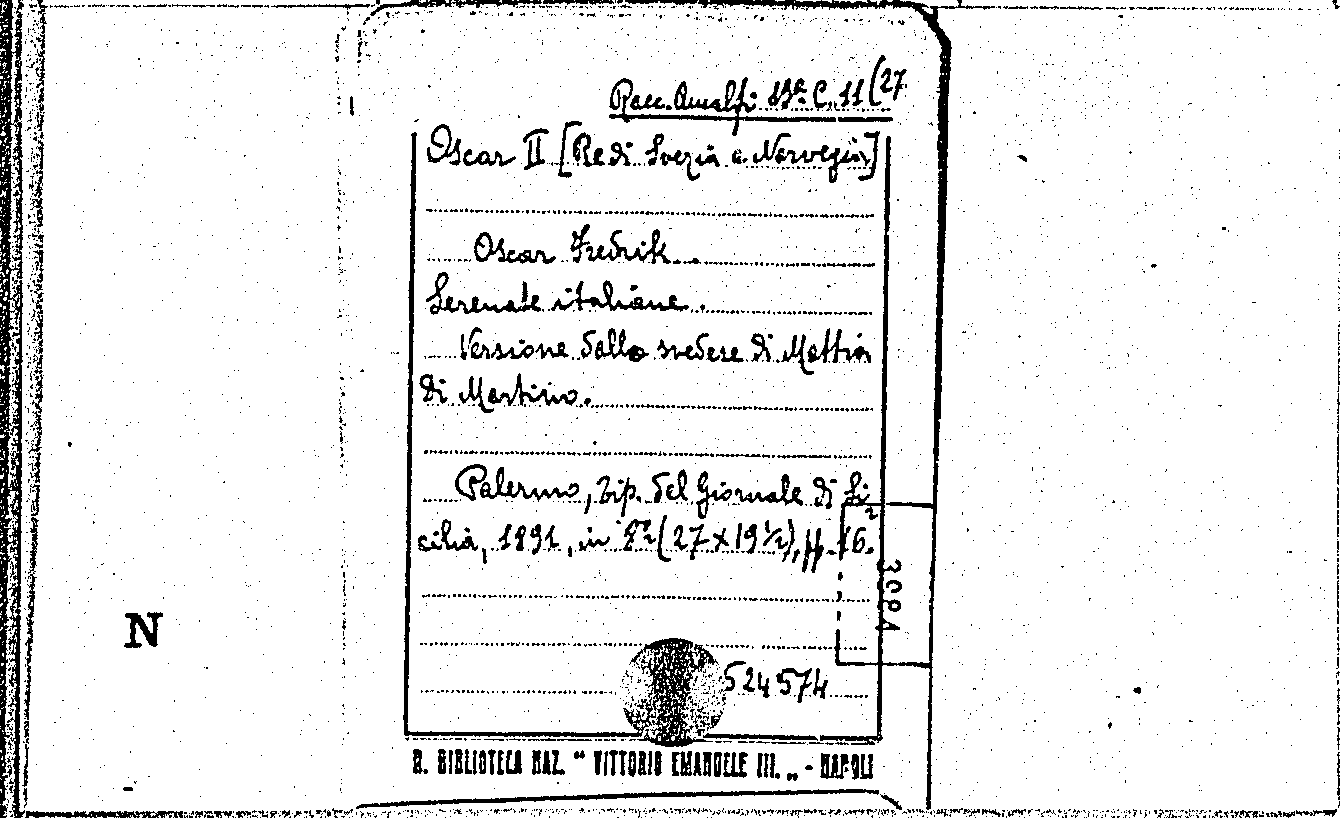 Racc. Amalfi 13ª. C. 11 (27
Oscar II [Re di Svezia e Norvegia]
Oscar Fredrik..
Serenate italiane.
Versione dallo svedese di Mattia
di Martino.
Palermo, Tip. del Giornale di Si-
cilia, 1891, in 8º (27 x 19 ½), pp. 16.
3094
N
524574
R. BIBLIOTECA NAZ. “ VITTORIO EMANUELE III. „ - NAPOLI